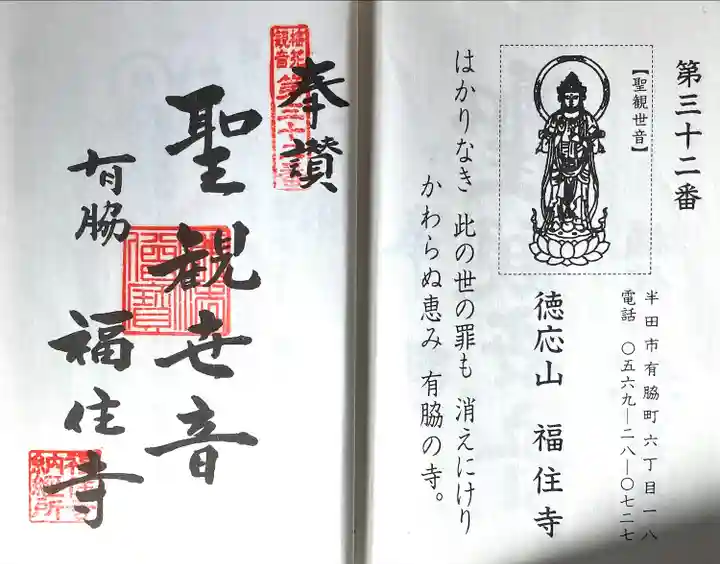 第三十二番
【聖観世音】
半田市有脇町六丁目一八
電話 〇五六九―二八―〇七二七
徳応山 福住寺
はかりなき 此の世の罪も 消えにけり
かわらぬ恵み 有脇の寺。
奉讃
聖観世音
有脇 福住寺
観音
第三十二番
納経所